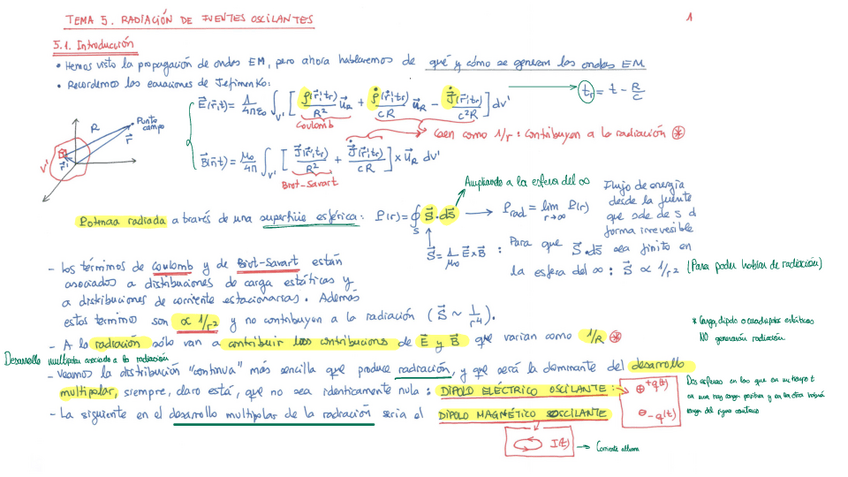 TEMA 5. RADIACIÓN DE FUENTES OSCILANTES
1
5.1. Introducción
• Hemos visto la propagación de ondas EM, pero ahora hablaremos de qué y cómo se generan las ondas EM
• Recordemos las ecuaciones de Jefimenko:
t_r = t - R/c
E(r,t) = 1/4πε₀ ∫_V' [ ρ(r',t_r)/R² u_R + ρ̇(r',t_r)/cR u_R - J̇(r',t_r)/c²R ] dv'
Coulomb
Caen como 1/r : contribuyen a la radiación ⊛
B(r,t) = μ₀/4π ∫_V' [ J(r',t_r)/R² + J̇(r',t_r)/cR ] × u_R dv'
Biot-Savart
R
Punto campo
r
r'
V'
Ampliando a la esfera del ∞
Potencia radiada a través de una superficie esférica: P(r) = ∮_S S·ds → P_rad = lim_{r→∞} P(r)
Flujo de energía
desde la fuente
que sale de S d
forma irreversible
S = 1/μ₀ E×B : Para que S·ds sea finito en
la esfera del ∞ : S ∝ 1/r² (Para poder hablar de radiación)
- Los términos de Coulomb y de Biot-Savart están
asociados a distribuciones de carga estáticas y
a distribuciones de corriente estacionarias. Además
estos términos son ∝ 1/r² y no contribuyen a la radiación (S ~ 1/r⁴).
- A la radiación sólo van a contribuir las contribucions de E y B que varían como 1/R ⊛
* Carga, dipolo o cuadrupolos estáticos
NO generarán radiación
Desarrollo multipolar asociado a la radiación
- Veamos la distribución "continua" más sencilla que produce radiación, y que será la dominante del desarrollo
multipolar, siempre, claro está, que no sea idénticamente nula: DIPOLO ELÉCTRICO OSCILANTE:
⊕ +q(t)
⊖ -q(t)
Dos esferas en las que en un tiempo t
en una hay carga positiva y en la otra habrá
carga del signo contrario
- La siguiente en el desarrollo multipolar de la radiación sería el DIPOLO MAGNÉTICO OSCILANTE
I(t) → Corriente alterna